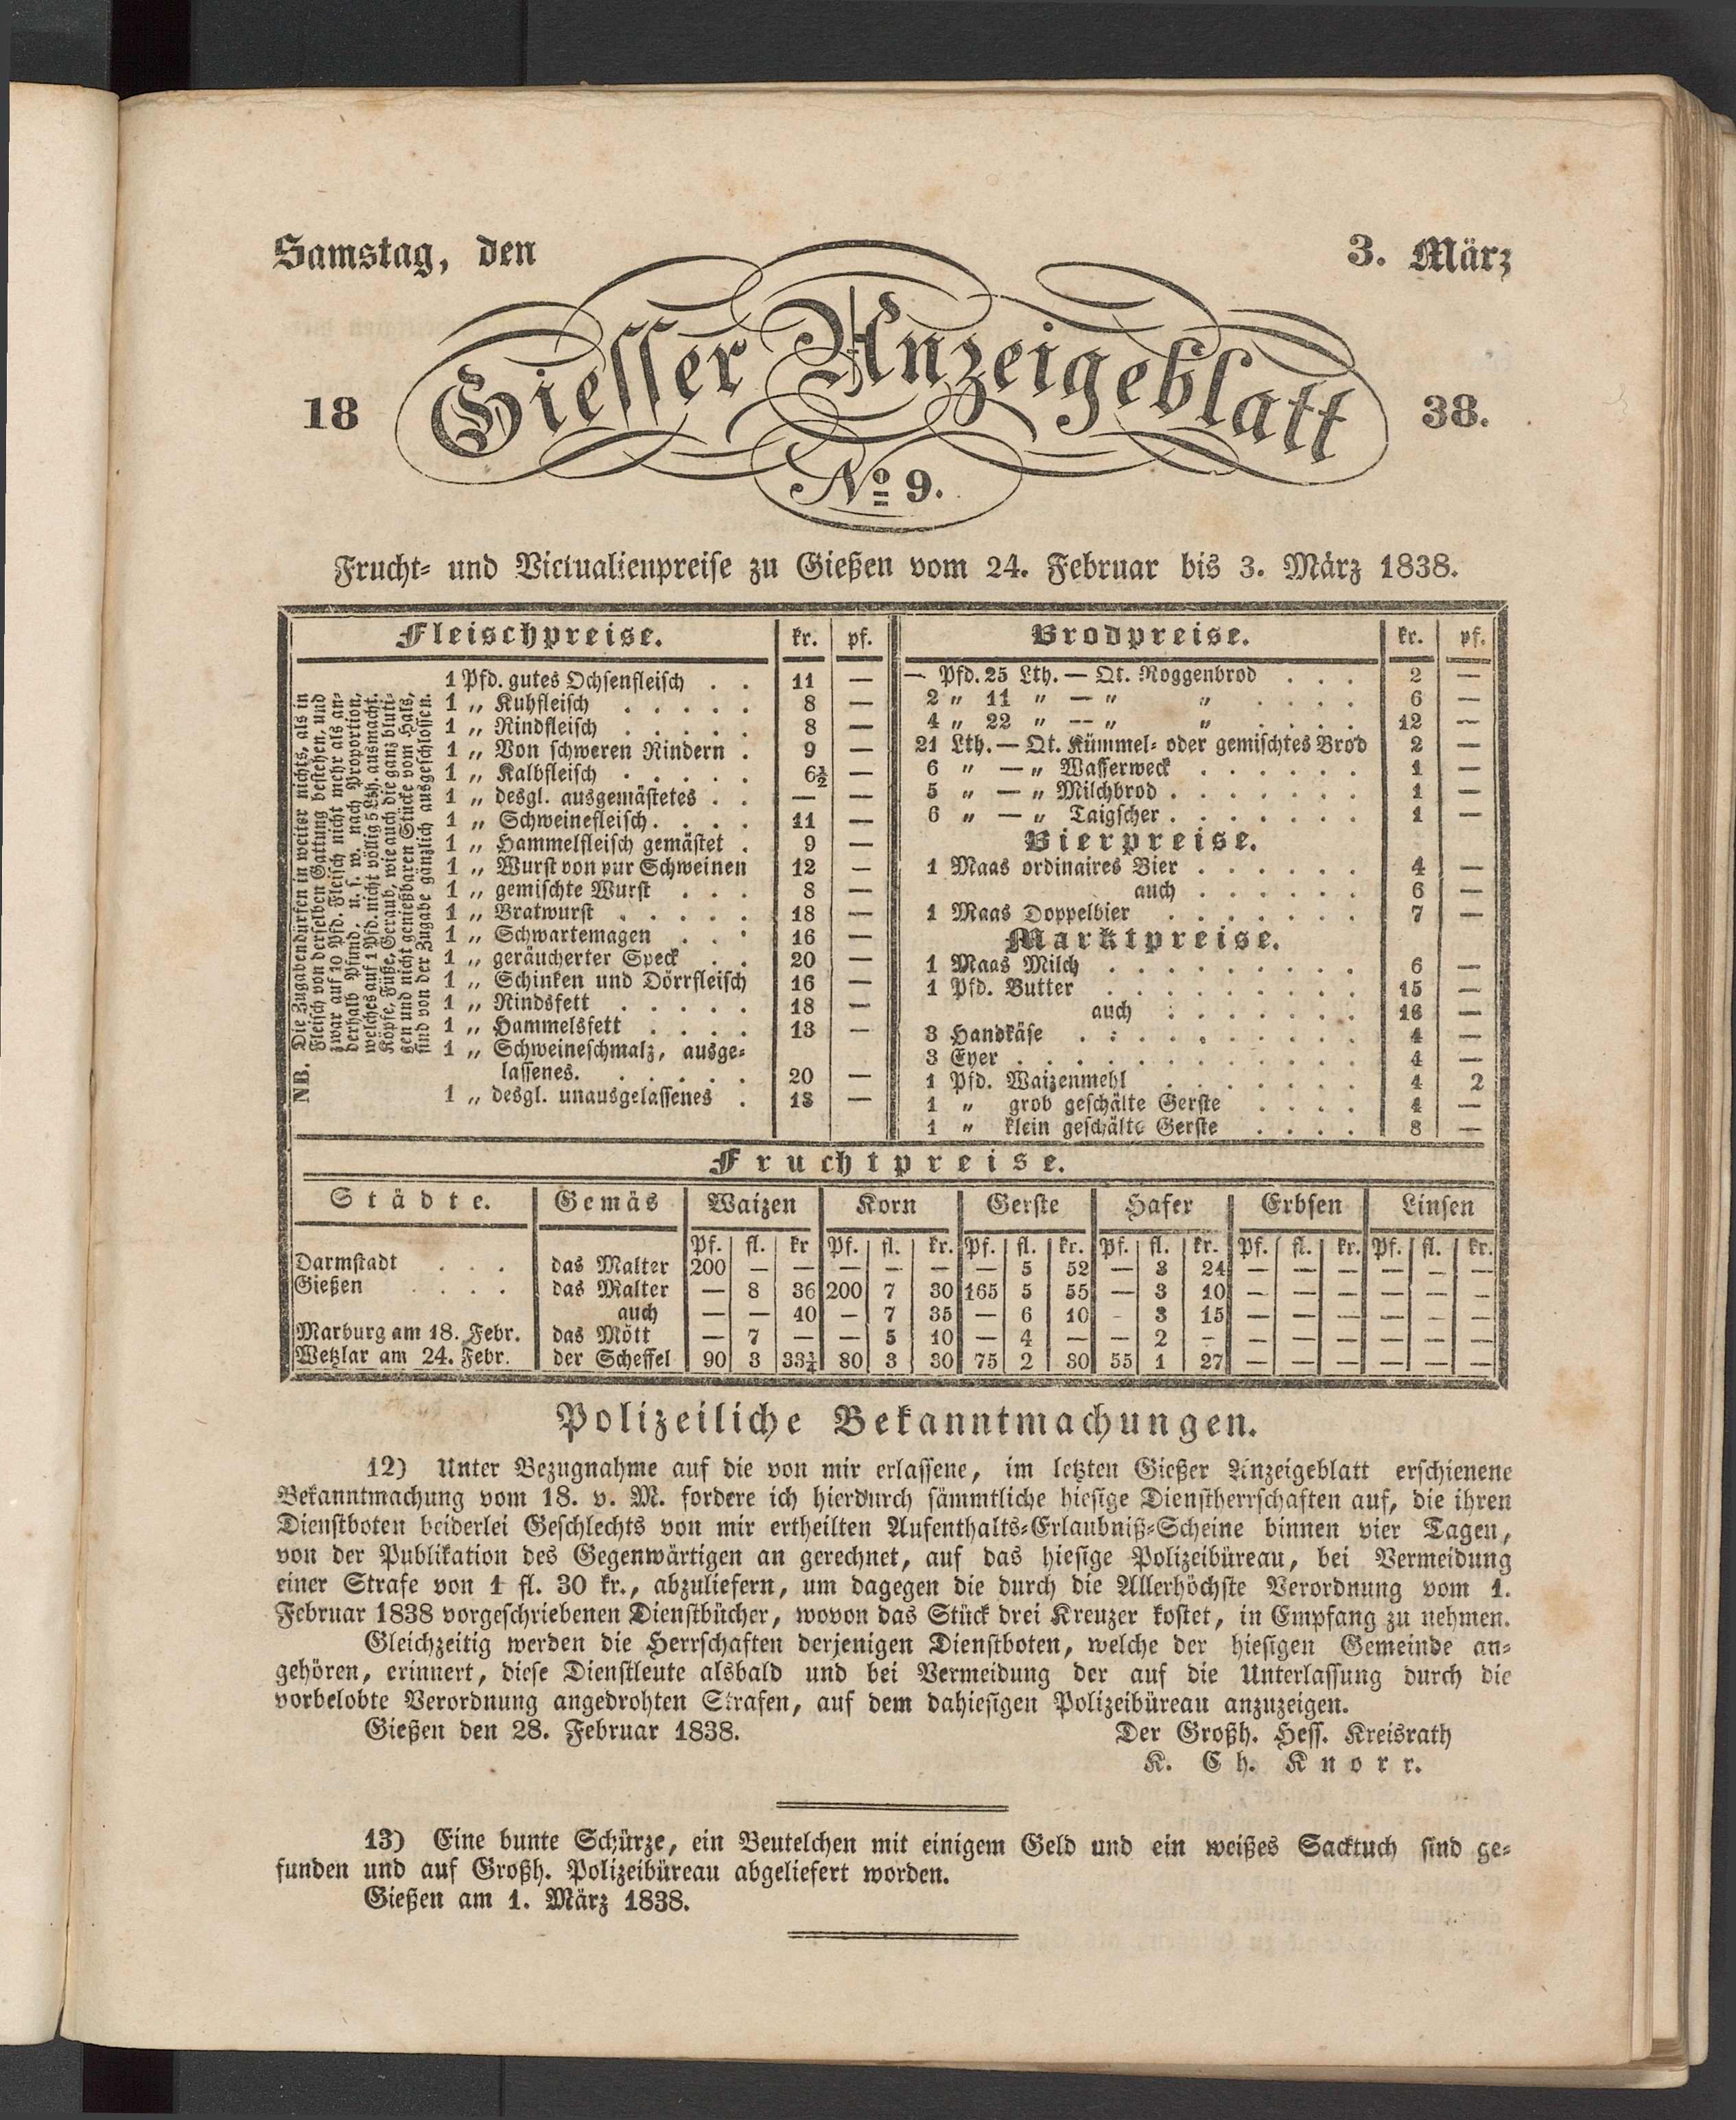 Samstag, den 3. März
18 Giesser Anzeigeblatt 38.
No 9.
Frucht- und Victualienpreise zu Gießen vom 24. Februar bis 3. März 1838.
Fleischpreise. kr. pf.
NB. Die Zugaben dürfen in weiter nichts, als in
Fleisch von derselben Gattung bestehen, und
zwar auf 10 Pfd. Fleisch nicht mehr als an-
derhalb Pfund. u. s. w. nach Proportion,
welches auf 1 Pfd. nicht völlig 5 Lth. ausmacht.
Köpfe, Füße, Geraub, wie auch die ganz bluti-
gen und nicht genießbaren Stücke vom Hals,
sind von der Zugabe gänzlich ausgeschlossen.
1 Pfd. gutes Ochsenfleisch . . 11 —
1 „ Kuhfleisch . . . . . 8 —
1 „ Rindfleisch . . . . . 8 —
1 „ Von schweren Rindern . 9 —
1 „ Kalbfleisch . . . . . 6½ —
1 „ desgl. ausgemästetes . . — —
1 „ Schweinefleisch . . . . 11 —
1 „ Hammelfleisch gemästet . 9 —
1 „ Wurst von pur Schweinen 12 —
1 „ gemischte Wurst . . . 8 —
1 „ Bratwurst . . . . . 18 —
1 „ Schwartemagen . . . 16 —
1 „ geräucherter Speck . . 20 —
1 „ Schinken und Dörrfleisch 16 —
1 „ Rindsfett . . . . . 18 —
1 „ Hammelsfett . . . . 13 —
1 „ Schweineschmalz, ausge-
lassenes. . . . . . 20 —
1 „ desgl. unausgelassenes . 18 —
Brodpreise. kr. pf.
— Pfd. 25 Lth. — Qt. Roggenbrod . . . 2 —
2 „ 11 „ — „ „ . . . . 6 —
4 „ 22 „ — „ „ . . . . 12 —
21 Lth. — Qt. Kümmel- oder gemischtes Brod 2 —
6 „ — „ Wasserweck . . . . . . 1 —
5 „ — „ Milchbrod . . . . . . . 1 —
6 „ — „ Taigscher . . . . . . . 1 —
Bierpreise.
1 Maas ordinaires Bier . . . . . . 4 —
auch . . . . . . 6 —
1 Maas Doppelbier . . . . . . . 7 —
Marktpreise.
1 Maas Milch . . . . . . . . . 6 —
1 Pfd. Butter . . . . . . . . . 15 —
auch . . . . . . . 16 —
3 Handkäse . . . . . . . . . . 4 —
3 Eyer . . . . . . . . . . . . 4 —
1 Pfd. Waizenmehl . . . . . . . 4 2
1 „ grob geschälte Gerste . . . . 4 —
1 „ klein geschälte Gerste . . . . 8 —
Fruchtpreise.
Städte. Gemäs Waizen Korn Gerste Hafer Erbsen Linsen
Pf. fl. kr Pf. fl. kr. Pf. fl. kr. Pf. fl. kr. Pf. fl. kr. Pf. fl. kr.
Darmstadt . . . das Malter 200 — — — — — — 5 52 — 3 24 — — — — — —
Gießen . . . . das Malter — 8 36 200 7 30 165 5 55 — 3 10 — — — — — —
auch — — 40 — 7 35 — 6 10 - 3 15 — — — — — —
Marburg am 18. Febr. das Mött — 7 — — 5 10 — 4 — — 2 — — — — — — —
Wetzlar am 24. Febr. der Scheffel 90 3 33¾ 80 3 30 75 2 30 55 1 27 — — — — — —
Polizeiliche Bekanntmachungen.
12) Unter Bezugnahme auf die von mir erlassene, im letzten Gießer Anzeigeblatt erschienene
Bekanntmachung vom 18. v. M. fordere ich hierdurch sämmtliche hiesige Dienstherrschaften auf, die ihren
Dienstboten beiderlei Geschlechts von mir ertheilten Aufenthalts-Erlaubniß-Scheine binnen vier Tagen,
von der Publikation des Gegenwärtigen an gerechnet, auf das hiesige Polizeibüreau, bei Vermeidung
einer Strafe von 1 fl. 30 kr., abzuliefern, um dagegen die durch die Allerhöchste Verordnung vom 1.
Februar 1838 vorgeschriebenen Dienstbücher, wovon das Stück drei Kreuzer kostet, in Empfang zu nehmen.
Gleichzeitig werden die Herrschaften derjenigen Dienstboten, welche der hiesigen Gemeinde an-
gehören, erinnert, diese Dienstleute alsbald und bei Vermeidung der auf die Unterlassung durch die
vorbelobte Verordnung angedrohten Strafen, auf dem dahiesigen Polizeibüreau anzuzeigen.
Gießen den 28. Februar 1838. Der Großh. Hess. Kreisrath
K. Ch. Knorr.
13) Eine bunte Schürze, ein Beutelchen mit einigem Geld und ein weißes Sacktuch sind ge-
funden und auf Großh. Polizeibüreau abgeliefert worden.
Gießen am 1. März 1838.